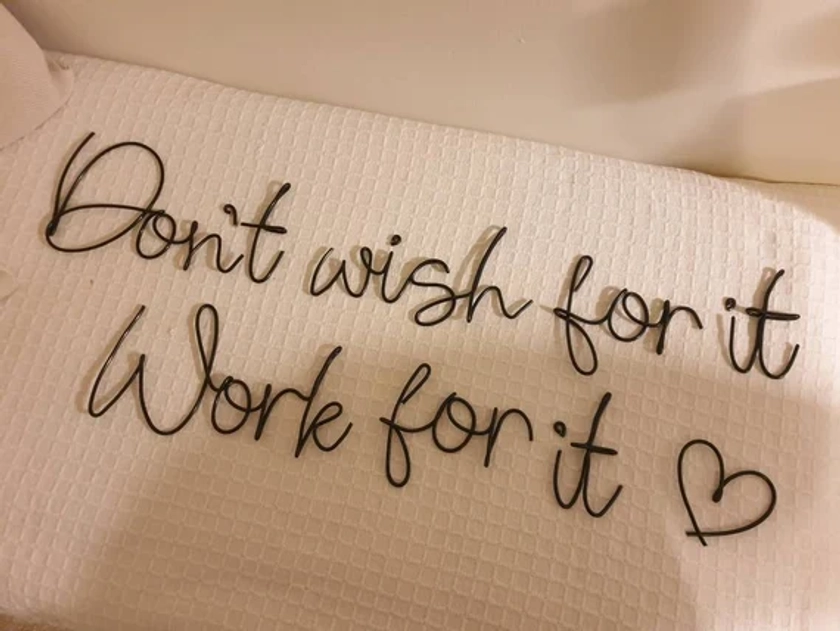 Don't wish for it
Work for it ♡